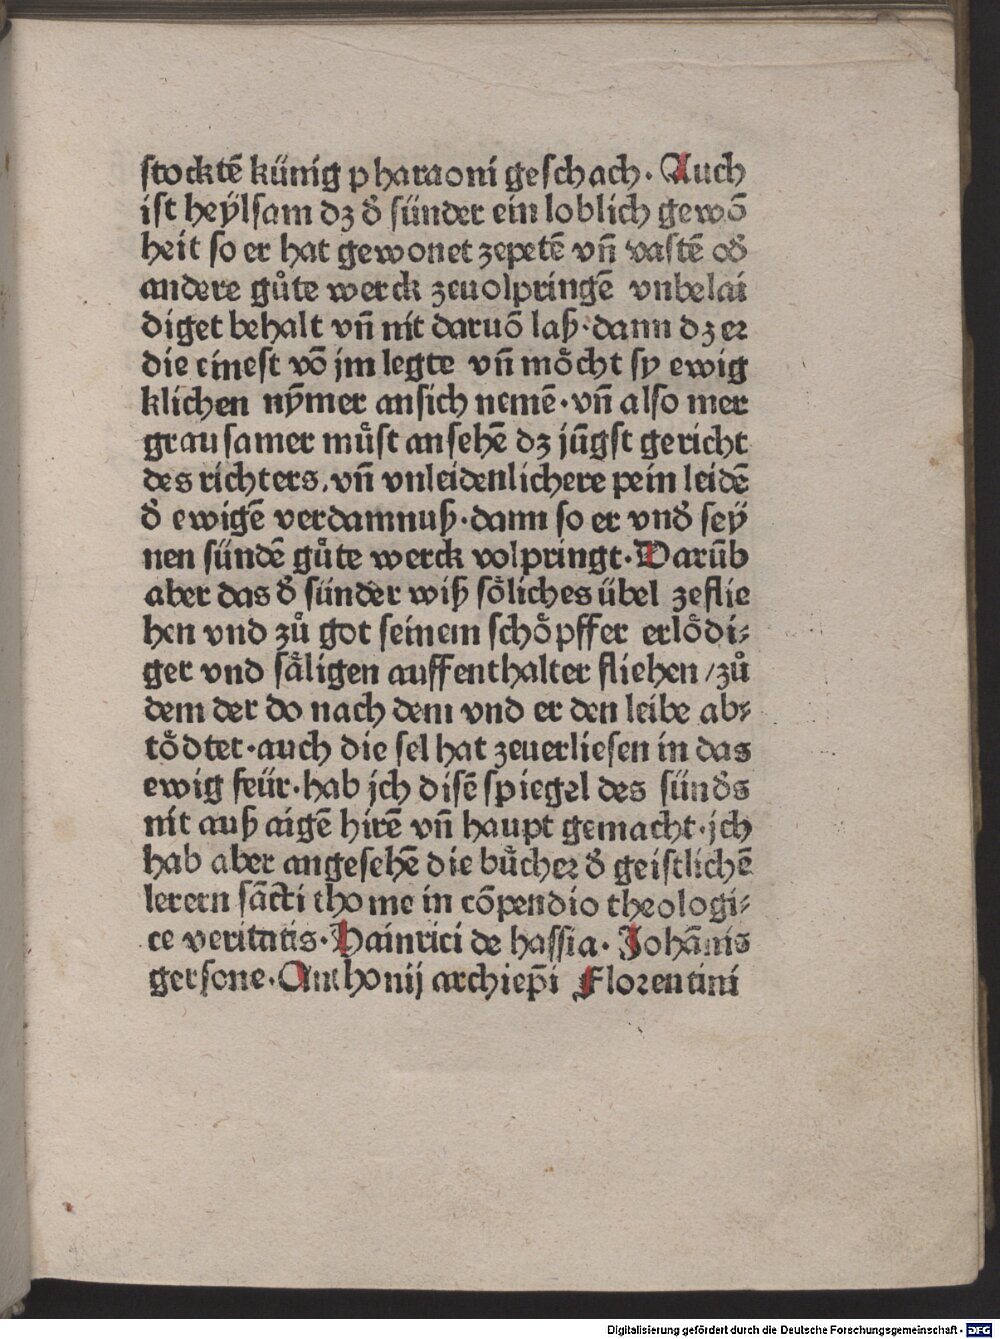 stocktẽ künig pharaoni geschach. Auch
ist heÿlsam dz d̾ sünder ein loblich gewõ
heit so er hat gewonet zepetẽ vñ vastẽ od̾
andere gůte werck zeuolpringẽ vnbelai
diget behalt vñ nit daruõ laß. dann dz er
die einest võ jm legte vñ mo̊cht sy ewig
klichen nÿmer ansich nemẽ. vñ also mer
grausamer mu̎st ansehẽ dz jũgst gericht
des richters, vñ vnleidenlichere pein leidẽ
d̾ ewigẽ verdamnuß. dann so er vnd̾ seÿ
nen sündẽ gůte werck volpringt. Darũb
aber das d̾ sünder wiß so̎liches übel zeflie
hen vnd zů got seinem scho̎pffer erlo̎di⸗
ger vnd sa̎ligen auffenthalter fliehen / zů
dem der do nach dem vnd er den leibe ab⸗
to̎dtet. auch die sel hat zeuerliesen in das
ewig feür. hab jch disẽ spiegel des sünd̾s
nit auß aigẽ hirẽ vñ haupt gemacht. jch
hab aber angesehẽ die bu̎cher d̾ geistlichẽ
lerern sãcti thome in cõpendio theologi⸗
ce veritatis. Hainrici de hassia. Johãnis
gersone. Anthonij archiep̃i Florentini
Digitalisierung gefördert durch die Deutsche Forschungsgemeinschaft - DFG